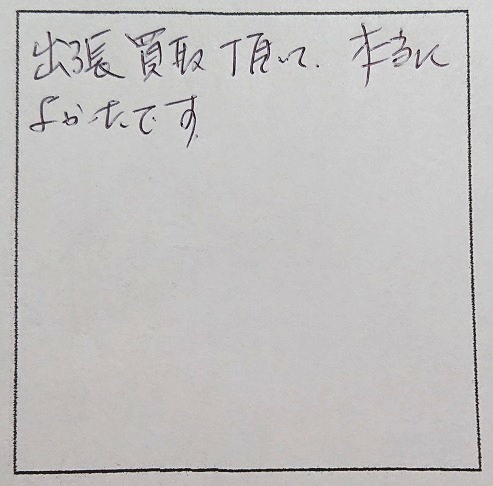 出張買取頂いて、本当に
よかったです